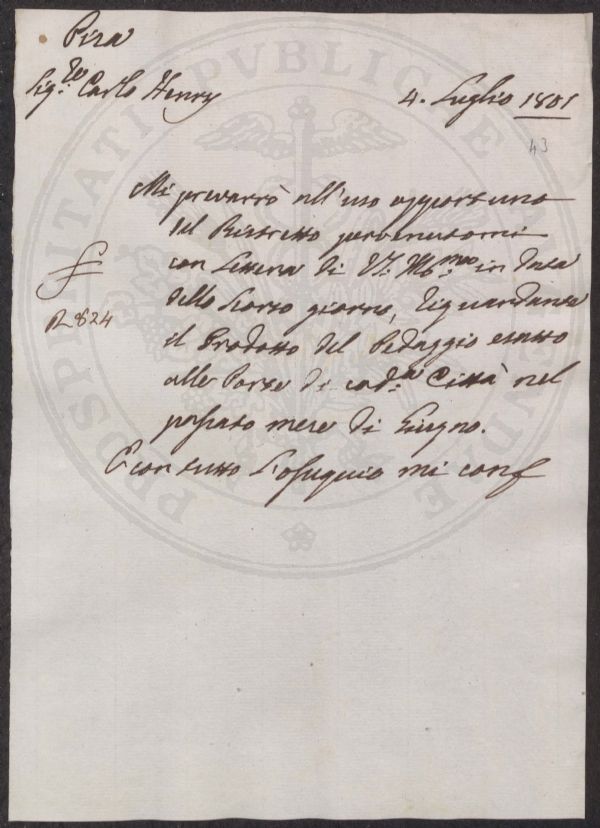 Pisa
Sig.re Carlo Henry
4. Luglio 1801
43
Mi prevarrò all'uso opportuno
del Ristretto pervenutomi
con Lettera di V.S. Ill.ma in data
dello scorso giorno, riguardante
R 824
il Prodotto del Pedaggio esatto
alle Porte di cod.a Città nel
passato mese di Giugno.
E con tutto l'ossequio mi conf
PROSPERITATI PUBLICAE AUGENDAE